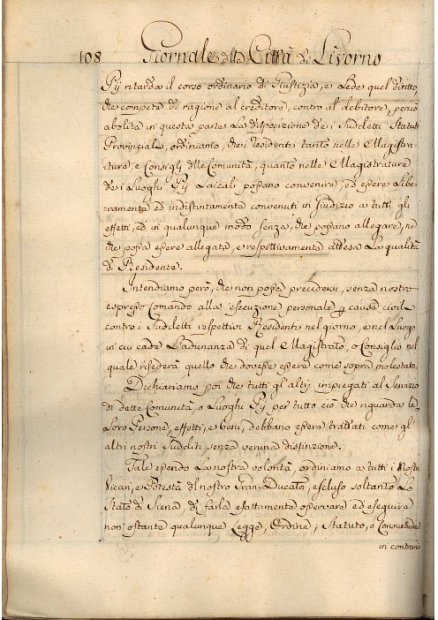 108 Giornale della Città di Livorno
Pij ritarda il corso ordinario di Giustizia, e Lede quel diritto,
che compete di ragione al creditore, contro al debitore, perciò
abolita in questa parte La disposizione de i Sudetti Statuti
Provinciali, ordiniamo, che i residenti tanto nelle Magistra-
ture, e Consigli delle Comunità, quanto nelle Magistrature
de i Luoghi Pij Laicali possano convenirsi, ed essere Libe-
ramente, ed indistintamente convenuti in Giudizio a tutti gli
effetti, ed in qualunque modo senza, che possano allegare, ne
che possa essere allegata, e respettivamente attesa La qualità
di Residente.
Intendiamo però, che non possa procedersi, senza nostro
espresso Comando alla esecuzione personale p causa civile
contro i Sudetti respettivi Residenti nel giorno, e nel Luogo
in cui cade L'adunanza di quel Magistrato, o Consiglio nel
quale risederà quello che dovesse essere come sopra molestato.
Dichiariamo poi che tutti gl'altri impiegati al Servizio
di dette Comunità, o Luoghi Pij per tutto ciò che riguarda le
Loro Persone, effetti, e beni, debbano essere trattati come gl'
altri nostri Sudditi senza veruna distinzione.
Tale essendo La nostra volontà, ordiniamo a tutti i Nostri
Vicari, e Potestà del nostro Gran-Ducato, escluso soltanto Lo
Stato di Siena, di farla esattamente osservare ed eseguire
non ostante qualunque Legge, Ordine, Statuto, o Consuetudine
in contrario